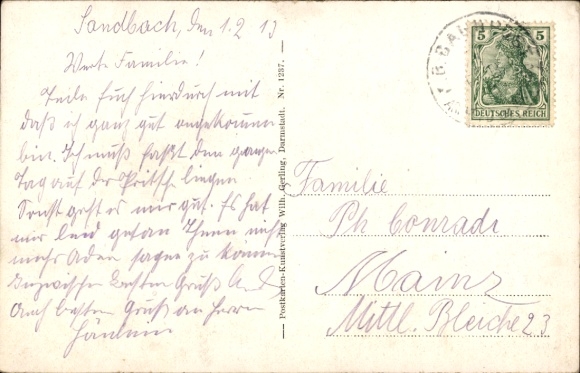 Sandbach, den 1.2 13
Werte Familie!
Teile Euch hierdurch mit
daß ich ganz gut angekommen
bin. Ich muß fast den ganzen
Tag auf der Pritsche liegen
Sonst geht es mir gut. Es hat
mir leid getan Ihnen nicht
mehr Aden sagen zu können
Inzwischen besten Gruß
Auch besten Gruß an Herrn
Postkarten-Kunstverlag Wilh. Gerling, Darmstadt. Nr. 1237.
BAHNPOST
5 5
DEUTSCHES REICH
Familie
Ph Conradi
Mainz
Mittl. Bleiche 23